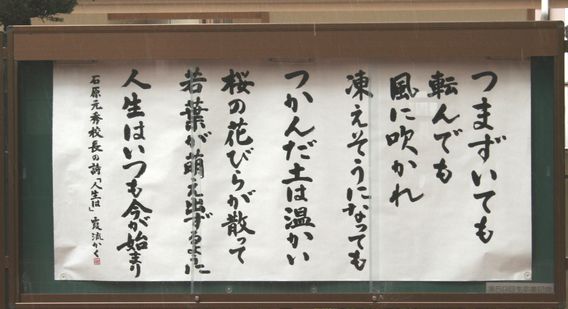 つまずいても
転んでも
風に吹かれ
凍えそうになっても
つかんだ土は温かい
桜の花びらが散って
若葉が萌え出ずるように
人生はいつも今が始まり
石原元秀校長の詩「人生は」 霞流かく